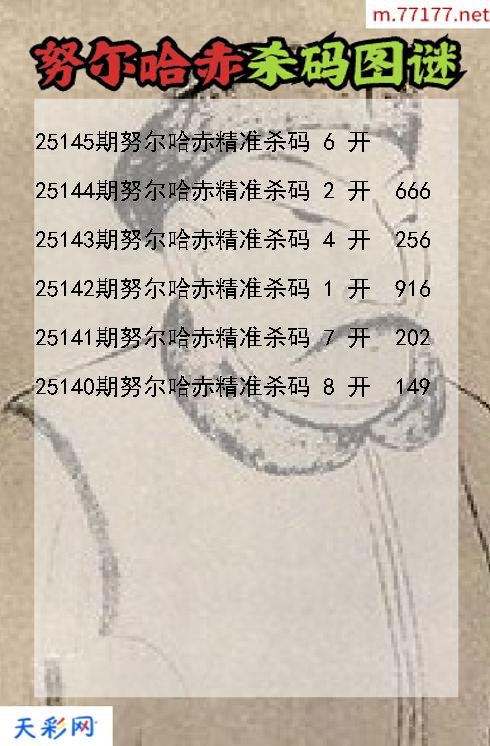 m.77177.net
努尔哈赤杀码图谜
25145期努尔哈赤精准杀码 6 开
25144期努尔哈赤精准杀码 2 开 666
25143期努尔哈赤精准杀码 4 开 256
25142期努尔哈赤精准杀码 1 开 916
25141期努尔哈赤精准杀码 7 开 202
25140期努尔哈赤精准杀码 8 开 149
天彩网